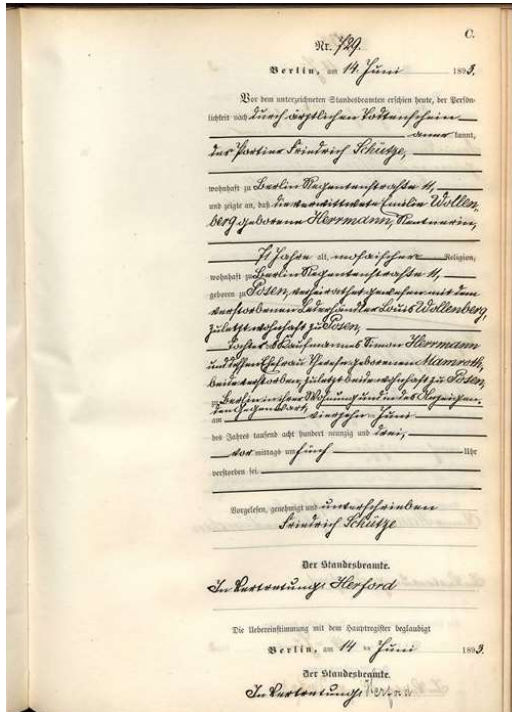 C.
Nr. 729.
Berlin, am 14. Juni 1893.
Vor dem unterzeichneten Standesbeamten erschien heute, der Persön-
lichkeit nach durch ärztlichen Todtenschein
anerkannt,
der Portier Friedrich Schütze,
wohnhaft zu Berlin Regentenstraße 11,
und zeigte an, daß die verwittwete Emilie Wollen-
berg geborene Herrmann, Rentnerin,
71 Jahre alt, mosaischer Religion,
wohnhaft zu Berlin Regentenstraße 11,
geboren zu Posen, verheirathet gewesen mit dem
verstorbenen Lederhändler Louis Wollenberg,
zuletzt wohnhaft zu Posen,
Tochter des Kaufmannes Simon Herrmann
und dessen Ehefrau Therese geborenen Mamroth,
beide verstorben, zuletzt beide wohnhaft zu Posen,
zu Berlin in ihrer Wohnung und in des Anzeigen-
den Gegenwart,
am vierzehn Juni
des Jahres tausend acht hundert neunzig und drei,
vor mittags um fünf Uhr
verstorben sei.
Vorgelesen, genehmigt und unterschrieben
Friedrich Schütze
Der Standesbeamte.
In Vertretung: Herford
Die Uebereinstimmung mit dem Hauptregister beglaubigt
Berlin, am 14 ten Juni 1893.
Der Standesbeamte.
In Vertretung: Herford